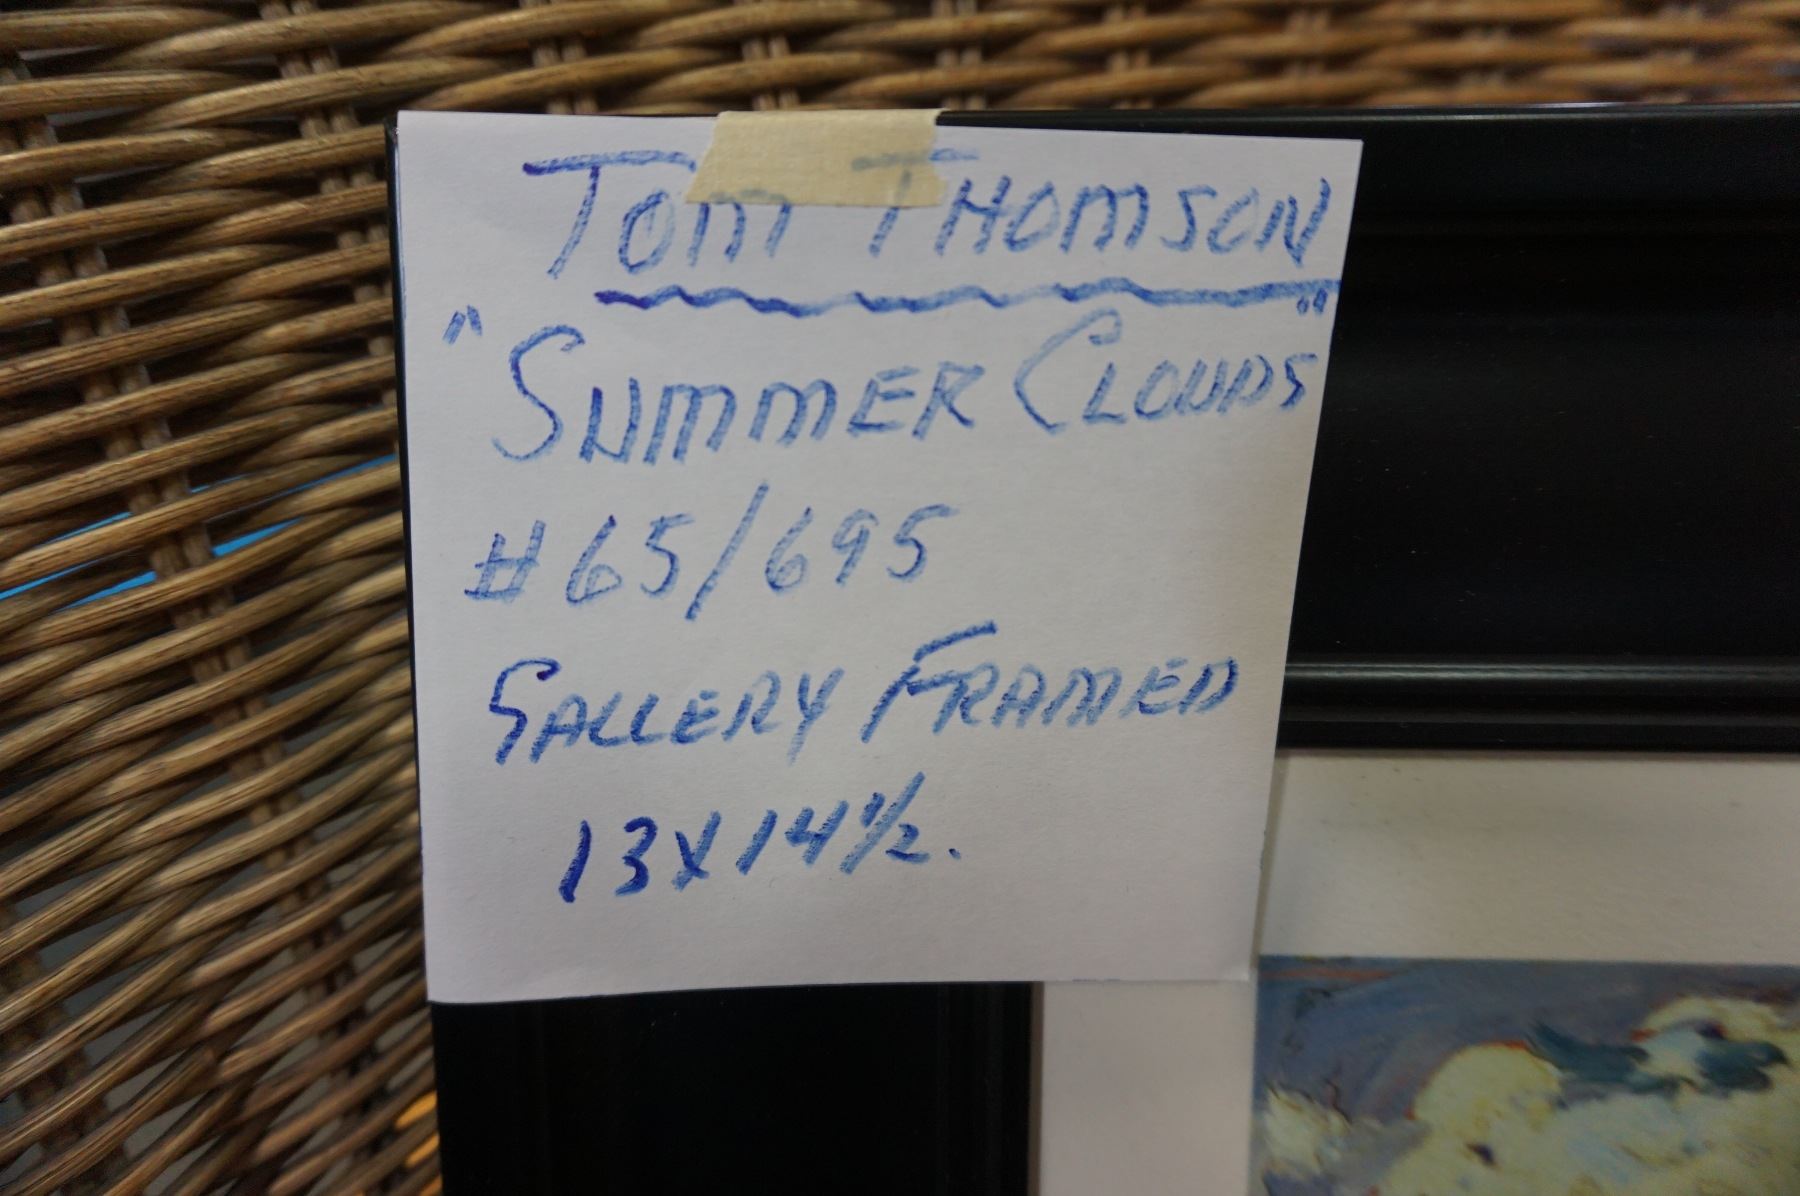 TOM THOMSON
"SUMMER CLOUDS"
#65/695
GALLERY FRAMED
13X14½.